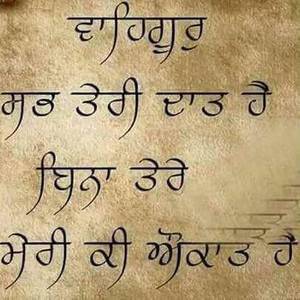 ਵਾਹਿਗੁਰੂ
ਸਭ ਤੇਰੀ ਦਾਤ ਹੈ
ਬਿਨਾ ਤੇਰੇ
ਮੇਰੀ ਕੀ ਔਕਾਤ ਹੈ